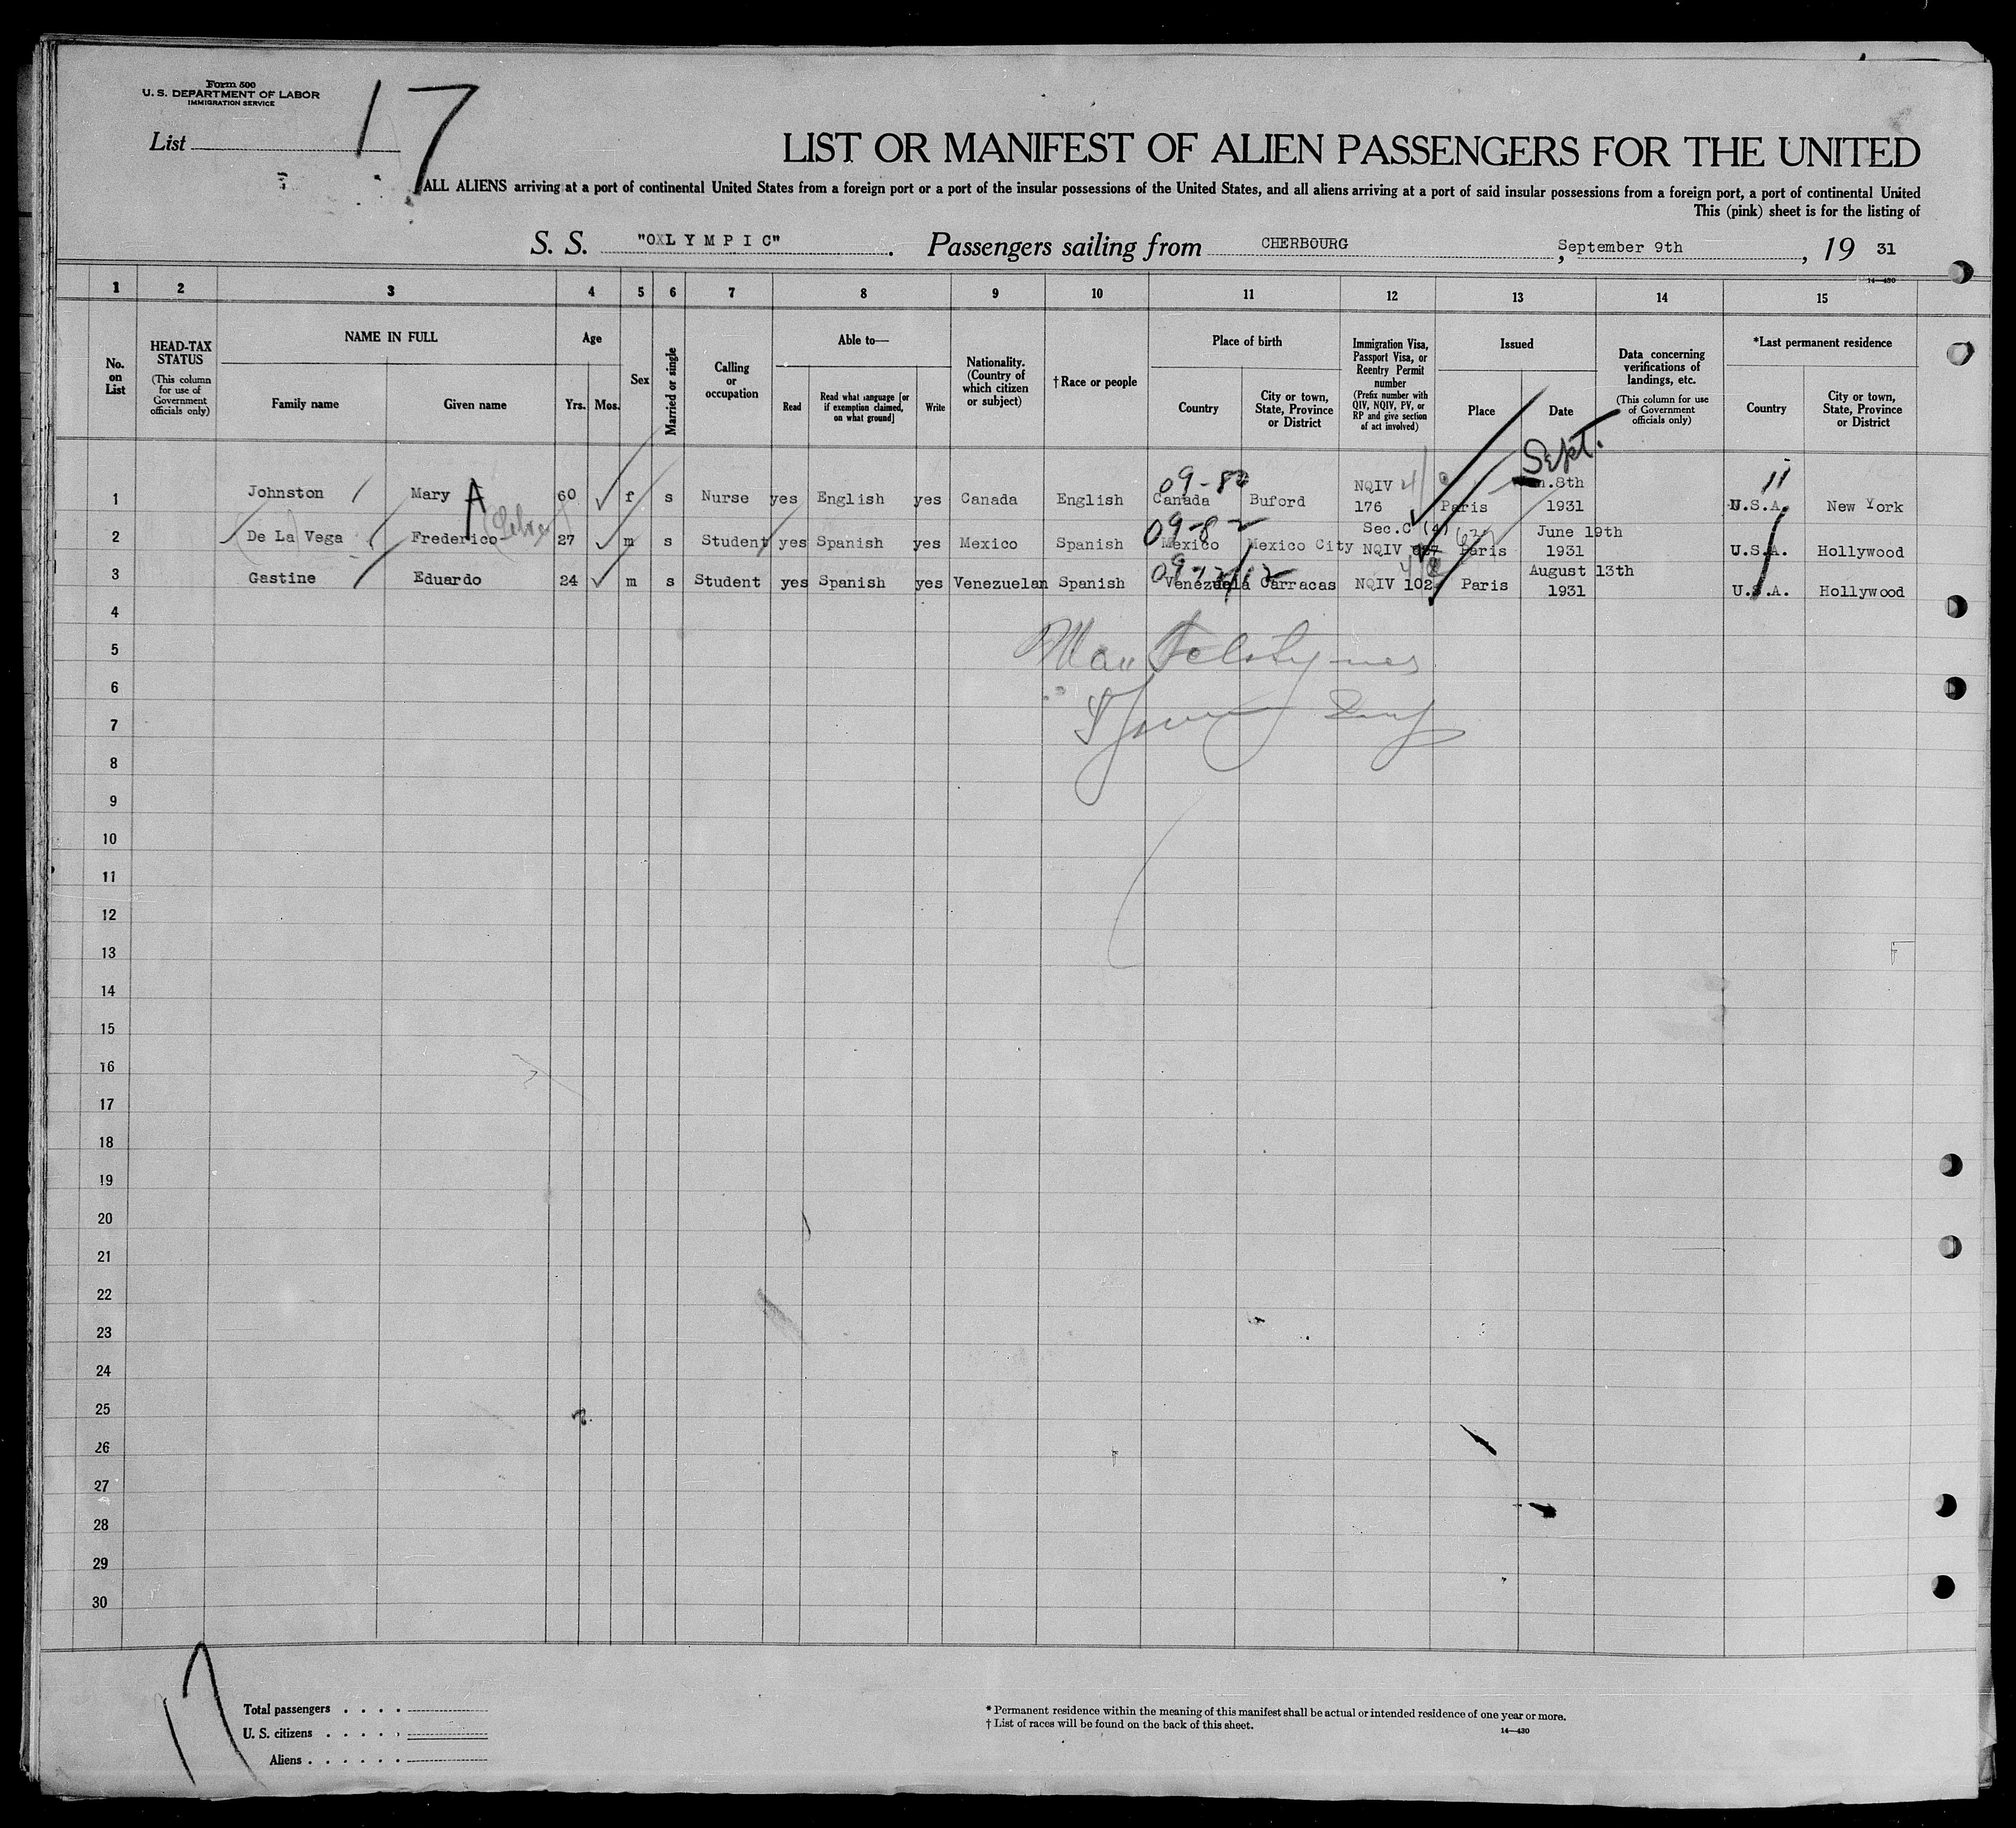 Form 500
U. S. DEPARTMENT OF LABOR
IMMIGRATION SERVICE
List 17
LIST OR MANIFEST OF ALIEN PASSENGERS FOR THE UNITED
ALL ALIENS arriving at a port of continental United States from a foreign port or a port of the insular possessions of the United States, and all aliens arriving at a port of said insular possessions from a foreign port, a port of continental United
This (pink) sheet is for the listing of
S. S. "OXLYMPIC". Passengers sailing from CHERBOURG, September 9th, 19 31
14—430
1 2 3 4 5 6 7 8 9 10 11 12 13 14 15
No. on List
HEAD-TAX STATUS (This column for use of Government officials only)
NAME IN FULL
Family name Given name
Age
Yrs. Mos.
Sex
Married or single
Calling or occupation
Able to—
Read
Read what language [or if exemption claimed, on what ground]
Write
Nationality. (Country of which citizen or subject)
† Race or people
Place of birth
Country
City or town, State, Province or District
Immigration Visa, Passport Visa, or Reentry Permit number (Prefix number with QIV, NQIV, PV, or RP and give section of act involved)
Issued
Place Date
Data concerning verifications of landings, etc. (This column for use of Government officials only)
*Last permanent residence
Country
City or town, State, Province or District
1 Johnston Mary A 60 f s Nurse yes English yes Canada English Canada Buford NQIV 176 Paris Sept. 8th 1931 U.S.A. New York
09-82
Sec.C (4)
2 De La Vega Frederico 27 m s Student yes Spanish yes Mexico Spanish Mexico Mexico City NQIV Paris June 19th 1931 U.S.A. Hollywood
09-82
3 Gastine Eduardo 24 m s Student yes Spanish yes Venezuelan Spanish Venezuela Carracas NQIV 102 Paris August 13th 1931 U.S.A. Hollywood
4
5
6
7
8
9
10
11
12
13
14
15
16
17
18
19
20
21
22
23
24
25
26
27
28
29
30
17
Total passengers . . . .
U. S. citizens . . . . .
Aliens . . . . . .
* Permanent residence within the meaning of this manifest shall be actual or intended residence of one year or more.
† List of races will be found on the back of this sheet.
14—430